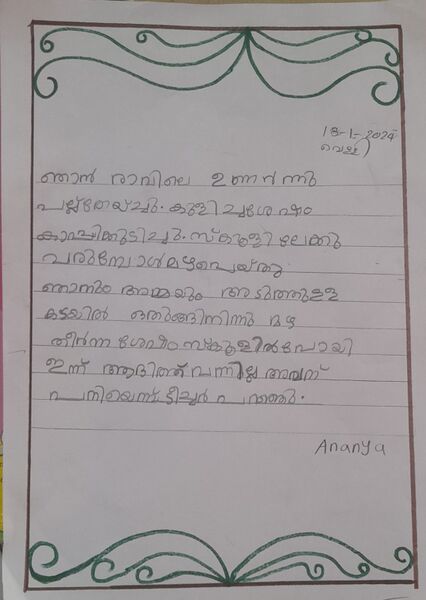 18-1-2024
വെള്ളി
ഞാൻ രാവിലെ ഉണർന്നു
പല്ല്തേയ്ച്ചു. കുളിച്ചശേഷം
കാപ്പികുടിച്ചു. സ്കൂളിലേക്കു
വരുമ്പോൾ മഴപെയ്തു
ഞാനും അമ്മയും അടുത്തുള്ള
കടയിൽ ഒതുങ്ങിനിന്നു മഴ
തീർന്ന ശേഷം സ്കൂളിൽ പോയി
ഇന്ന് ആദിത്ത് വന്നില്ല അവന്
പനിയെന്ന് ടീച്ചർ പറഞ്ഞു.
Ananya